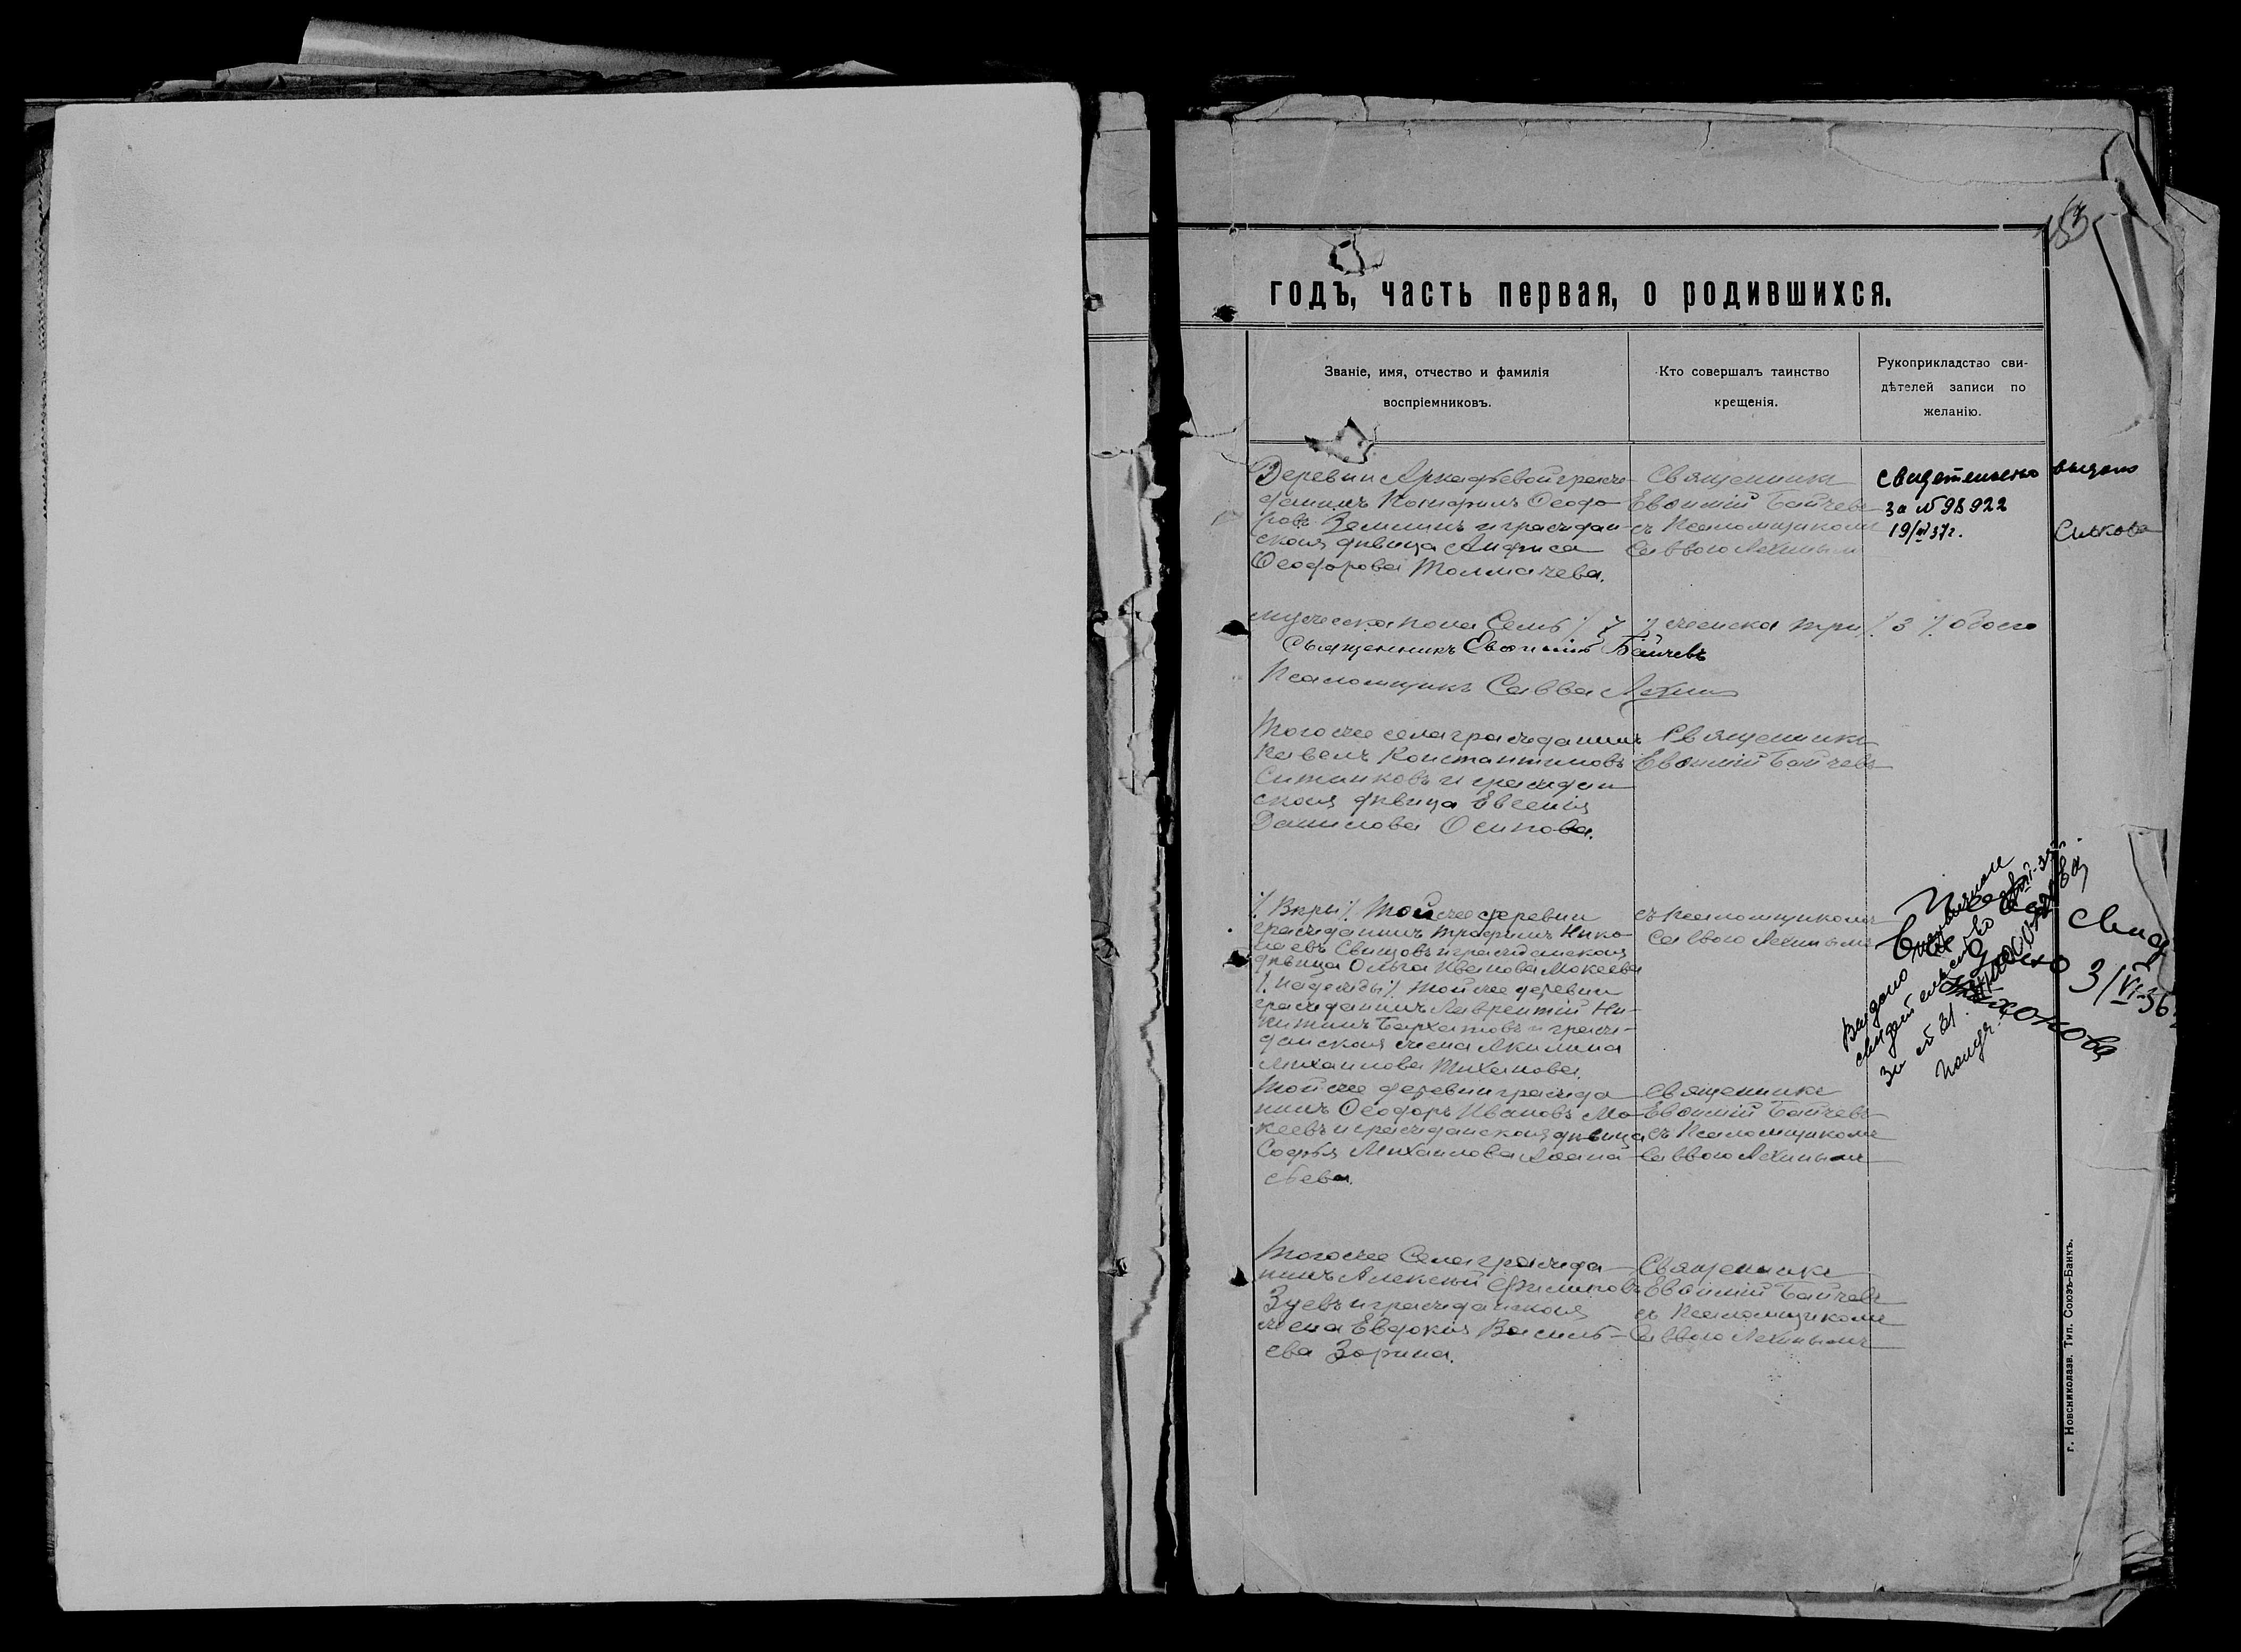 153
годъ, часть первая, о родившихся.
Званіе, имя, отчество и фамилія
воспріемниковъ.
Кто совершалъ таинство
крещенія.
Рукоприкладство сви-
дѣтелей записи по
желанію.
Деревни Аркадьевой граж-
данинъ Порфирій Ѳеодо-
ровъ Земнинъ и граждан-
ская дѣвица Анфиса
Ѳеодорова Толмачева.
Священникъ
Евѳимій Байчевъ
съ Псаломщикомъ
Саввою Лехинымъ
свидетельство выдано
за № 98922
19/XI 37г.
Силкова
мужеска пола Семь /. 7 ./ женска три /. 3 ./ обоего
Священникъ Евѳимій Байчевъ
Псаломщикъ Савва Лехинъ
Того же села гражданинъ
Павелъ Константиновъ
Ситниковъ и граждан
ская дѣвица Евгенія
Данилова Осипова.
Священникъ
Евѳимій Байчевъ
/. Вѣры ./ Той же деревни
гражданинъ Трофимъ Нико-
лаевъ Свищовъ и гражданская
дѣвица Ольга Иванова Мокеева
/. Надежды ./ Той же деревни
гражданинъ Лаврентій Ни-
китинъ Бархатовъ и граж-
данская жена Акилина
Михаилова Тиханова.
съ Псаломщикомъ
Саввою Лехинымъ
Выдано
свидетельство
за № 21.
Свид
3/VI-36
Тихонова
Той же деревни гражда
нинъ Ѳеодоръ Ивановъ Мо-
кеевъ и гражданская дѣвица
Софья Михаилова Аѳана-
сьева.
Священникъ
Евѳимій Байчевъ
съ Псаломщикомъ
Саввою Лехинымъ
Того же Села гражда-
нинъ Алексѣй Филиповъ
Зуевъ и гражданская
жена Евдокія Василь-
ева Зорина.
Священникъ
Евѳимій Байчевъ
съ Псаломщикомъ
Саввою Лехинымъ
г. Новониколаев. Тип. Союзъ-Банкъ.